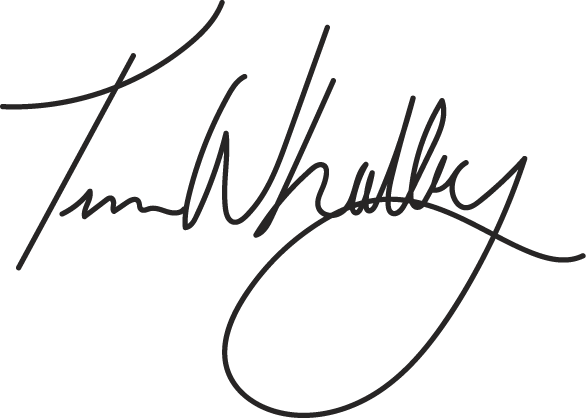 Tim Whalley